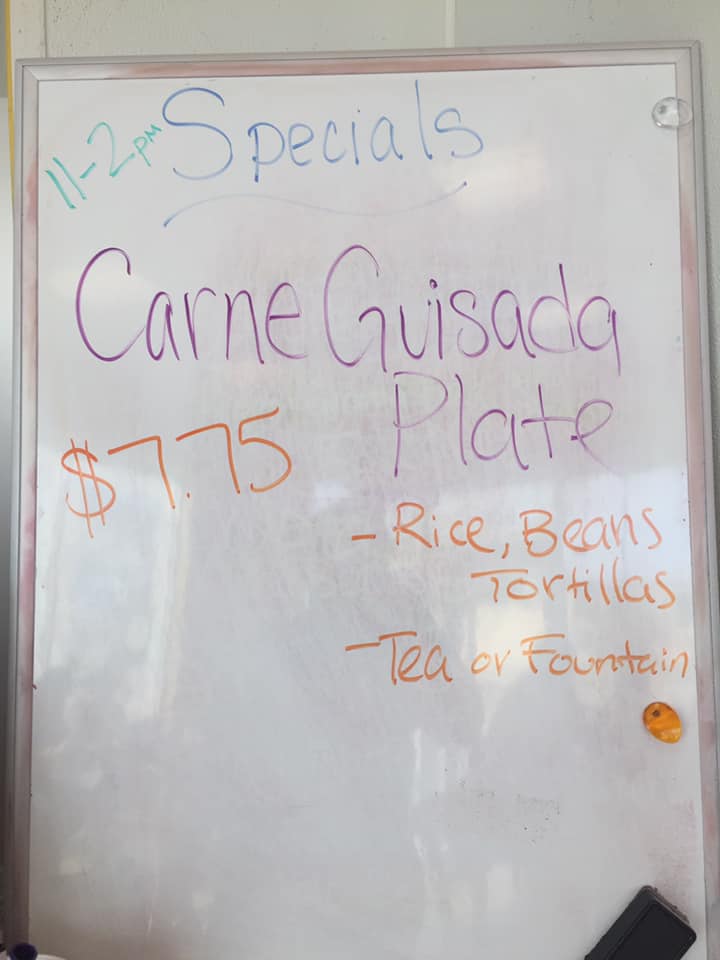 11-2pm Specials
Carne Guisada
Plate
$7.75
- Rice, Beans
Tortillas
- Tea or Fountain